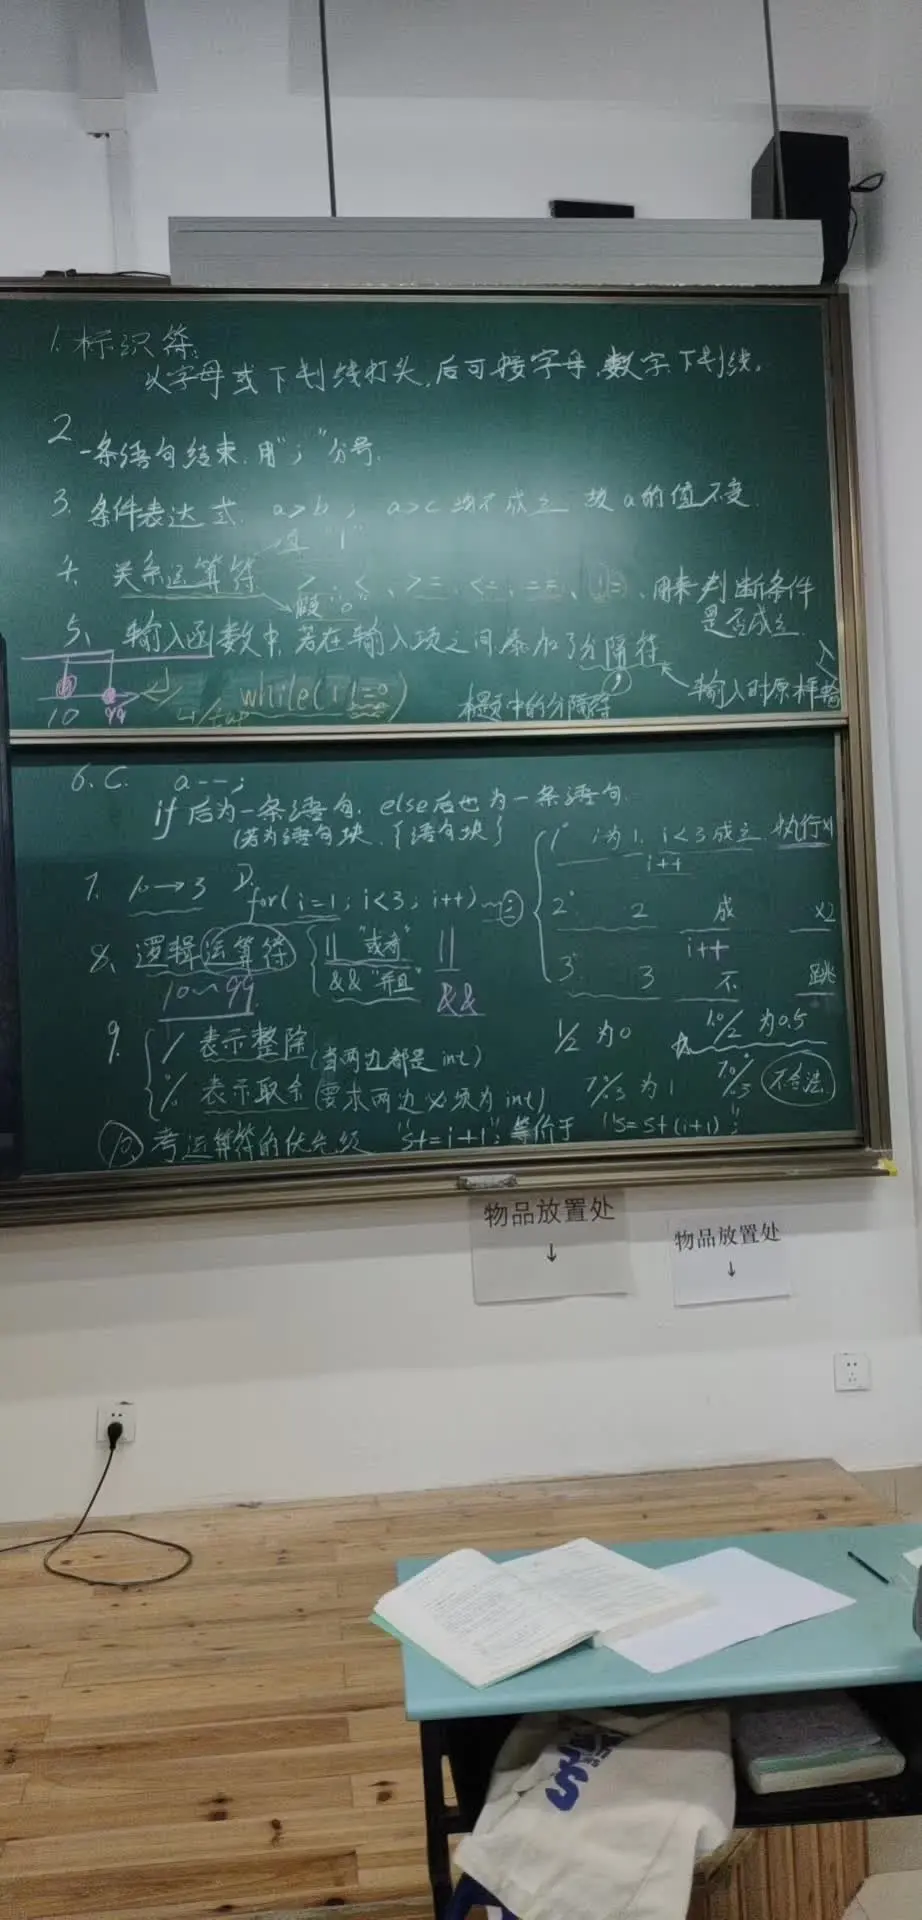 1. 标识符:
以字母或下划线打头,后可接字母、数字、下划线。
2
一条语句结束. 用";"分号.
3. 条件表达式. a>b, a>c 均不成立 故 a的值不变.
真 "1"
4. 关系运算符 >、<、>=、<=、==、!=、用来判断条件
是否成立
假 "0"
5、输入函数中,若在输入项之间添加了分隔符
输入时原样输
标题中的分隔符
while( !=0)
10 99
6. C. a--;
if 后为一条语句. else后也为一条语句
(若为语句块. {语句块}
7. 1→3 D. for(i=1; i<3; i++) ;
1° i为1, i<3成立 执行
i++
2° 2 成
i++
3° 3 不 跳
8、逻辑运算符 || "或者" ||
&& "并且" &&
10~99
9. / 表示整除(当两边都是 int) 1/2 为0 1.0/2 为0.5
% 表示取余(要求两边必须为 int) 7%3 为1 不合法.
10. 考运算符的优先级 "S+=i+1"; 等价于 "S=S+(i+1)";
物品放置处
↓
物品放置处
↓